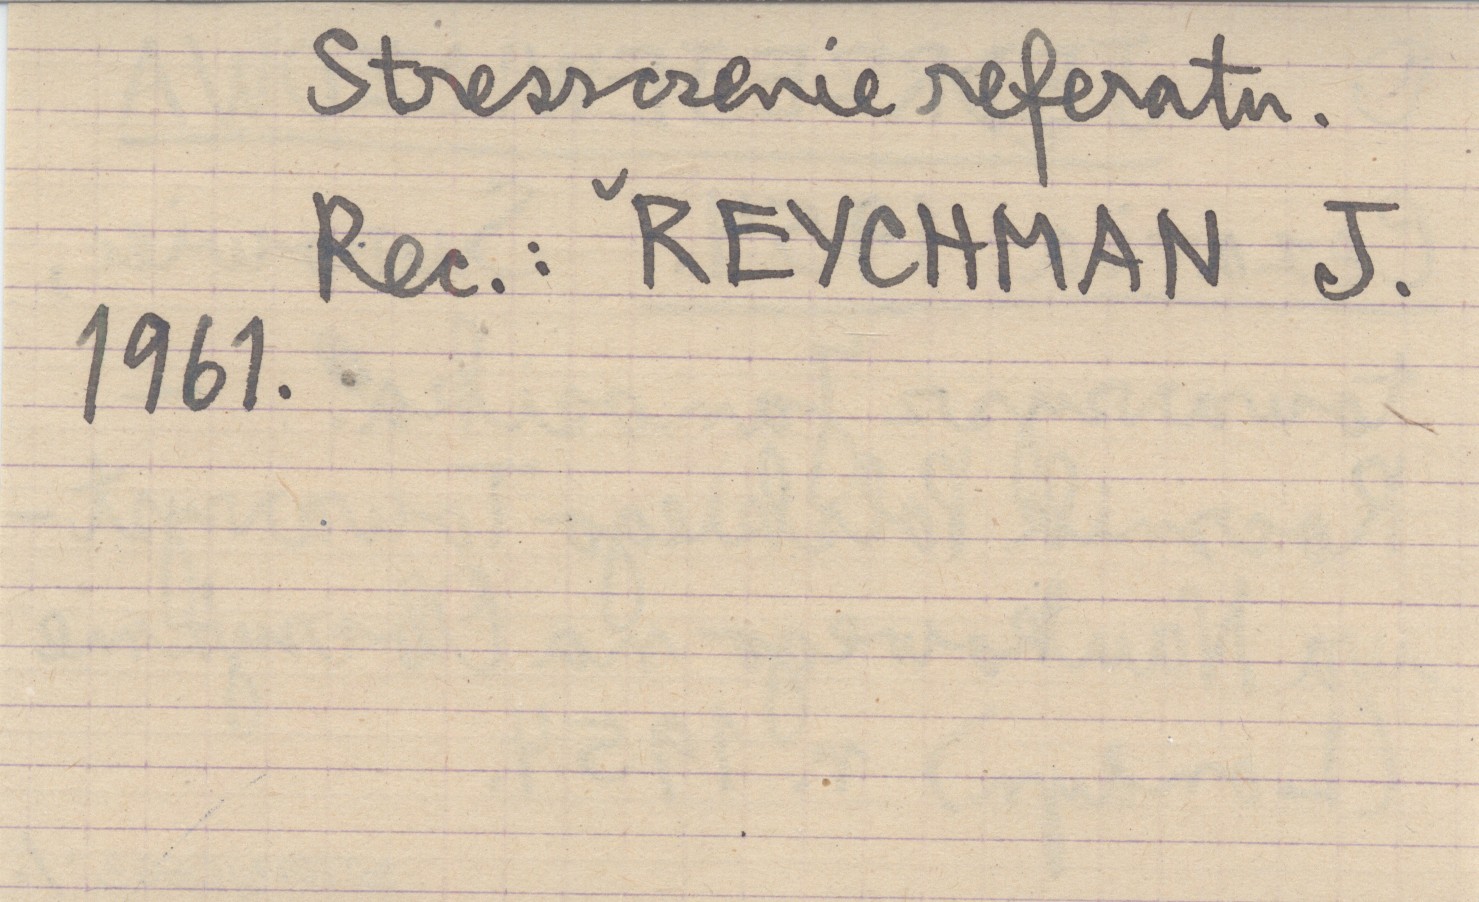 Streszczenie referatu.
Rec.: ˇREYCHMAN J.
1961.